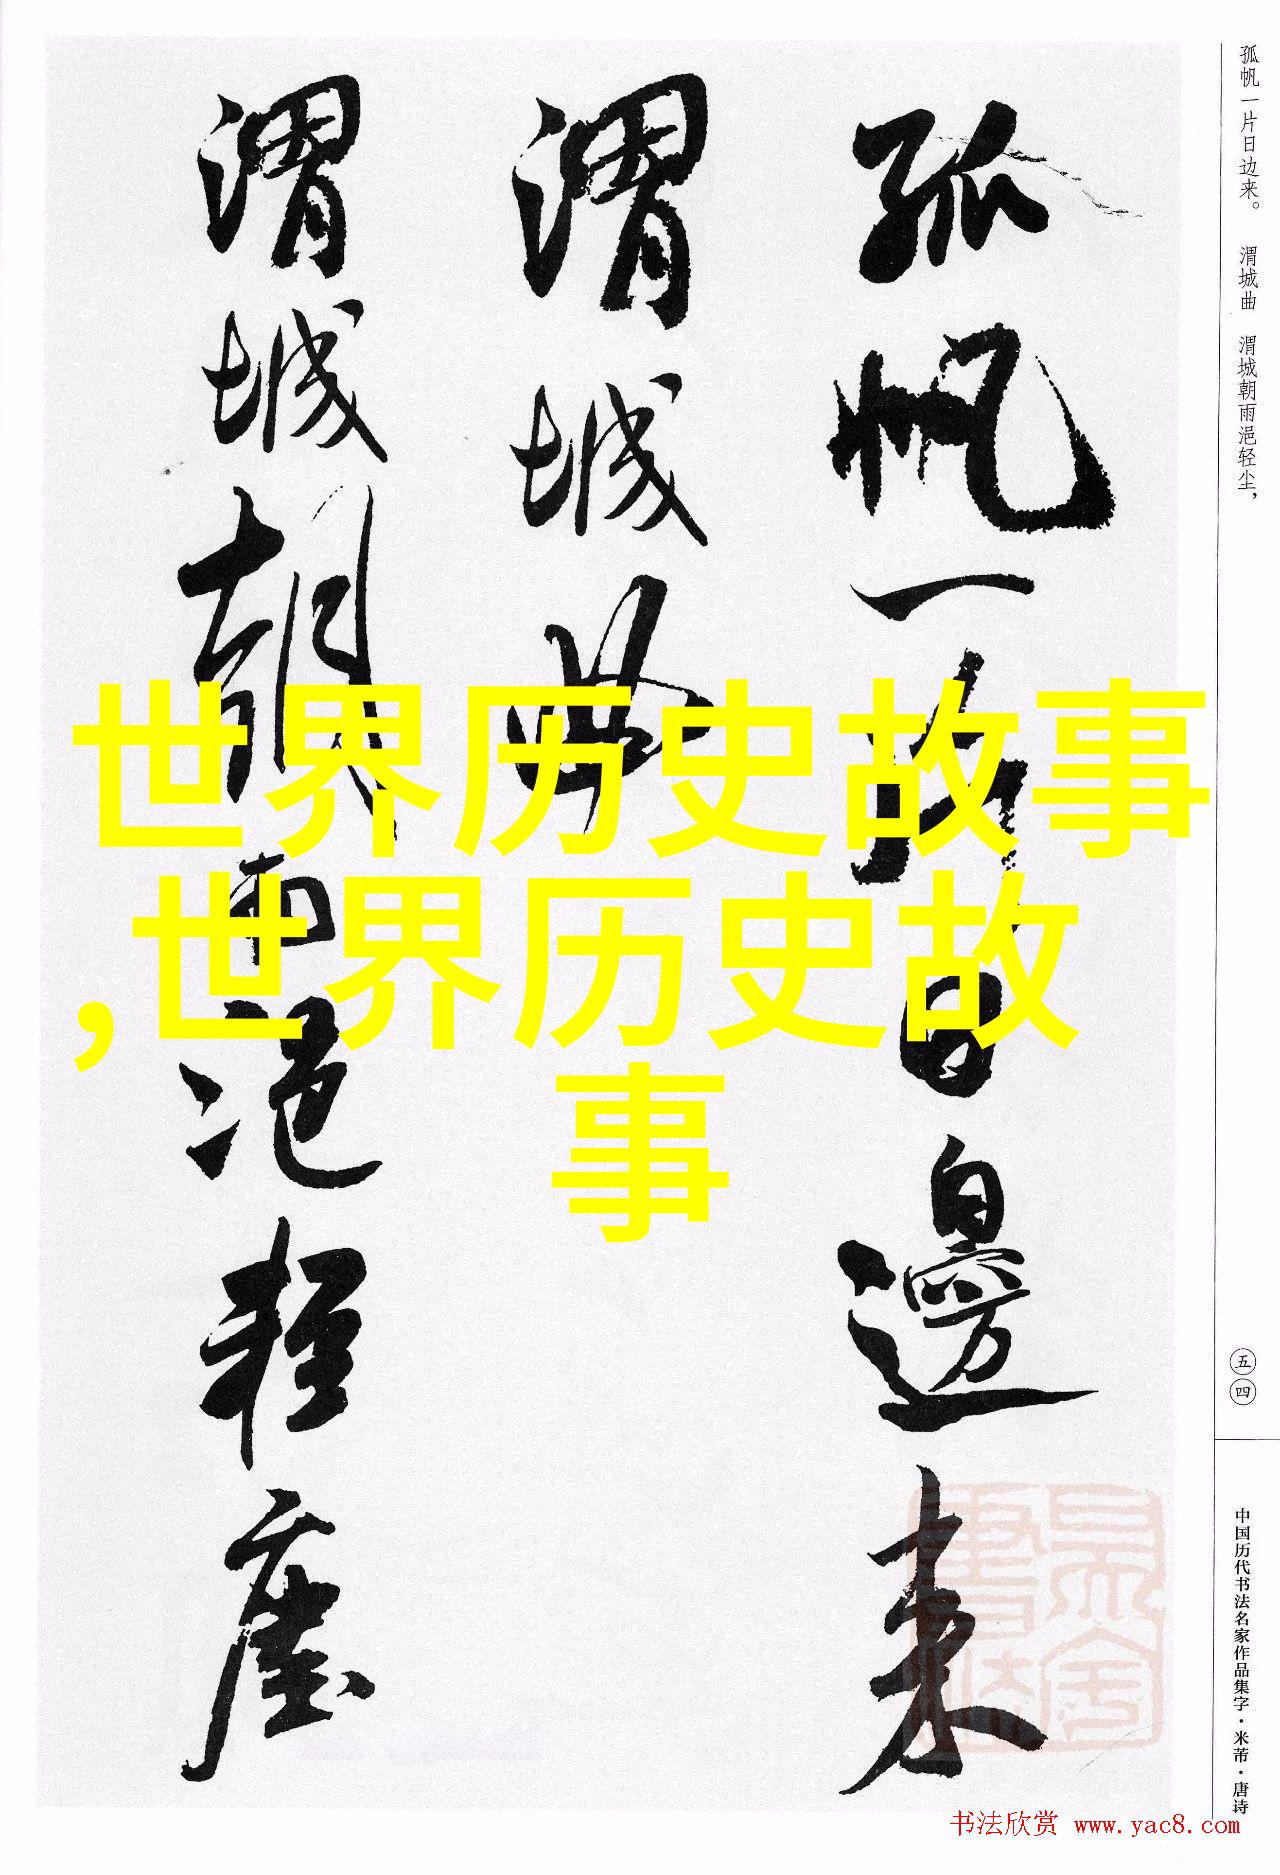 孤帆一片日边来。 渭城曲 渭城朝雨浥轻尘，
孤帆一片日邊来
渭城曲
渭城朝雨浥轻塵
世界历史故事
,世界历史故
事
五四
中国历代书法名家作品集字·米芾·唐诗
书法欣赏 www.yac8.com